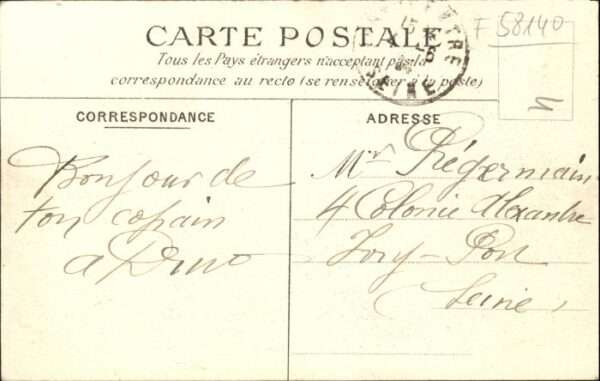 CARTE POSTALE
Tous les Pays étrangers n'acceptent pas la
correspondance au recto (se renseigner à la poste)
F 58140
SEINE
CORRESPONDANCE
Bonjour de
ton copain
ADRESSE
Mr Prégermain
4 Colonie Alexandre
Ivry-Port
Seine